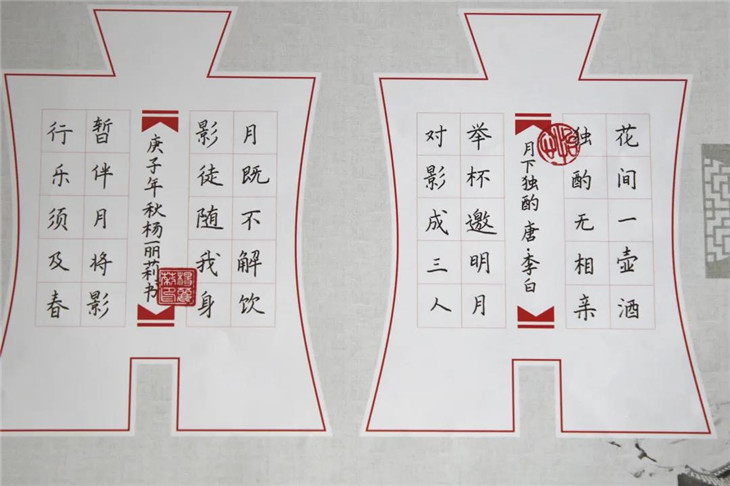 花间一壶酒
独酌无相亲
月下独酌 唐·李白
举杯邀明月
对影成三人
月既不解饮
影徒随我身
庚子年秋杨丽莉书
暂伴月将影
行乐须及春